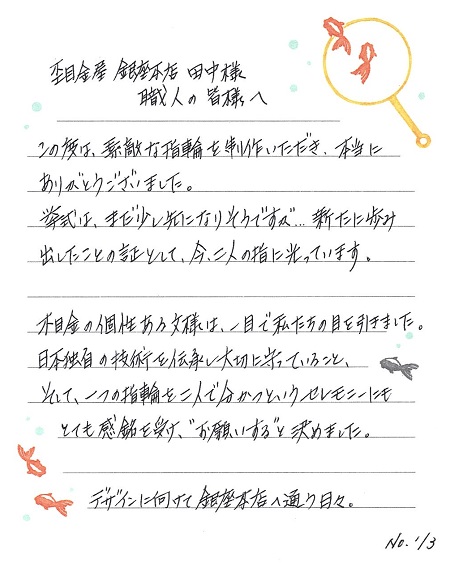 杢目金屋 銀座本店 田中様
職人の皆様へ
この度は、素敵な指輪を制作いただき、本当に
ありがとうございました。
挙式は、まだ少し先になりそうですが…新たに歩み
出したことの証として、今、二人の指に光っています。
木目金の個性ある文様は、一目で私たちの目を引きました。
日本独自の技術を伝承し大切に守っていること、
そして、一つの指輪を二人で分かつというセレモニーにも
とても感銘を受け、"お願いする"と決めました。
デザインに向けて銀座本店へ通う日々。
No. 1/3